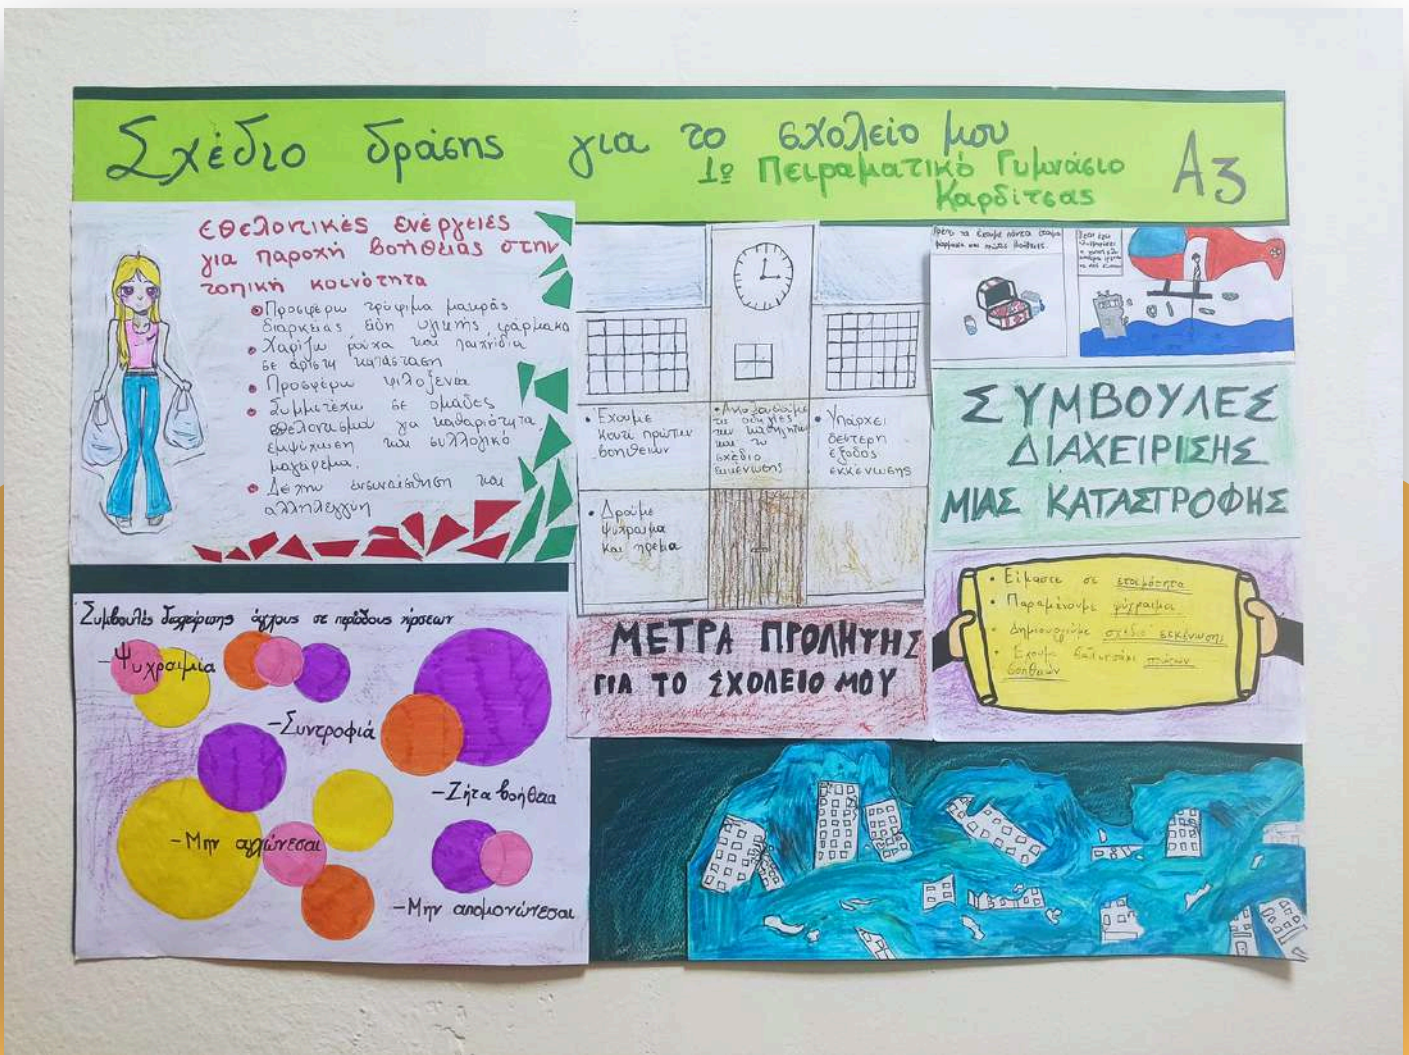 Σχέδιο δράσης για το σχολείο μου
1º Πειραματικό Γυμνάσιο
Καρδίτσας
Α3
Εθελοντικές ενέργειες
για παροχή βοήθειας στην
τοπική κοινότητα
Προσφέρω τρόφιμα μακράς
διαρκείας είδη υγιεινής, φάρμακα
Χαρίζω ρούχα και παιχνίδια
σε άριστη κατάσταση
Προσφέρω φιλοξενία
Συμμετέχω σε ομάδες
εθελοντισμού για καθαριότητα,
εμψύχωση και συλλογικό
μαγείρεμα.
Δείχνω ενσυναίσθηση και
αλληλεγγύη
• Έχουμε
κουτί πρώτων
βοηθειών
• Ακολουθούμε
τις οδηγίες
των καθηγητών
και το
σχέδιο
εκκένωσης
• Υπάρχει
δεύτερη
έξοδος
εκκένωσης
• Δρούμε
ψύχραιμα
και ήρεμα
ΜΕΤΡΑ ΠΡΟΛΗΨΗΣ
ΓΙΑ ΤΟ ΣΧΟΛΕΙΟ ΜΟΥ
Πρέπει να έχουμε πάντα έτοιμα
φάρμακα και πρώτες βοήθειες.
ΣΥΜΒΟΥΛΕΣ
ΔΙΑΧΕΙΡΙΣΗΣ
ΜΙΑΣ ΚΑΤΑΣΤΡΟΦΗΣ
• Είμαστε σε ετοιμότητα
• Παραμένουμε ψύχραιμοι
• Δημιουργούμε σχέδιο εκκένωσης
• Έχουμε πρώτων
βοηθειών
Συμβουλές διαχείρισης άγχους σε περίοδους κρίσεων
-Ψυχραιμία
-Συντροφιά
-Ζήτα βοήθεια
-Μην αγχώνεσαι
-Μην απομονώνεσαι